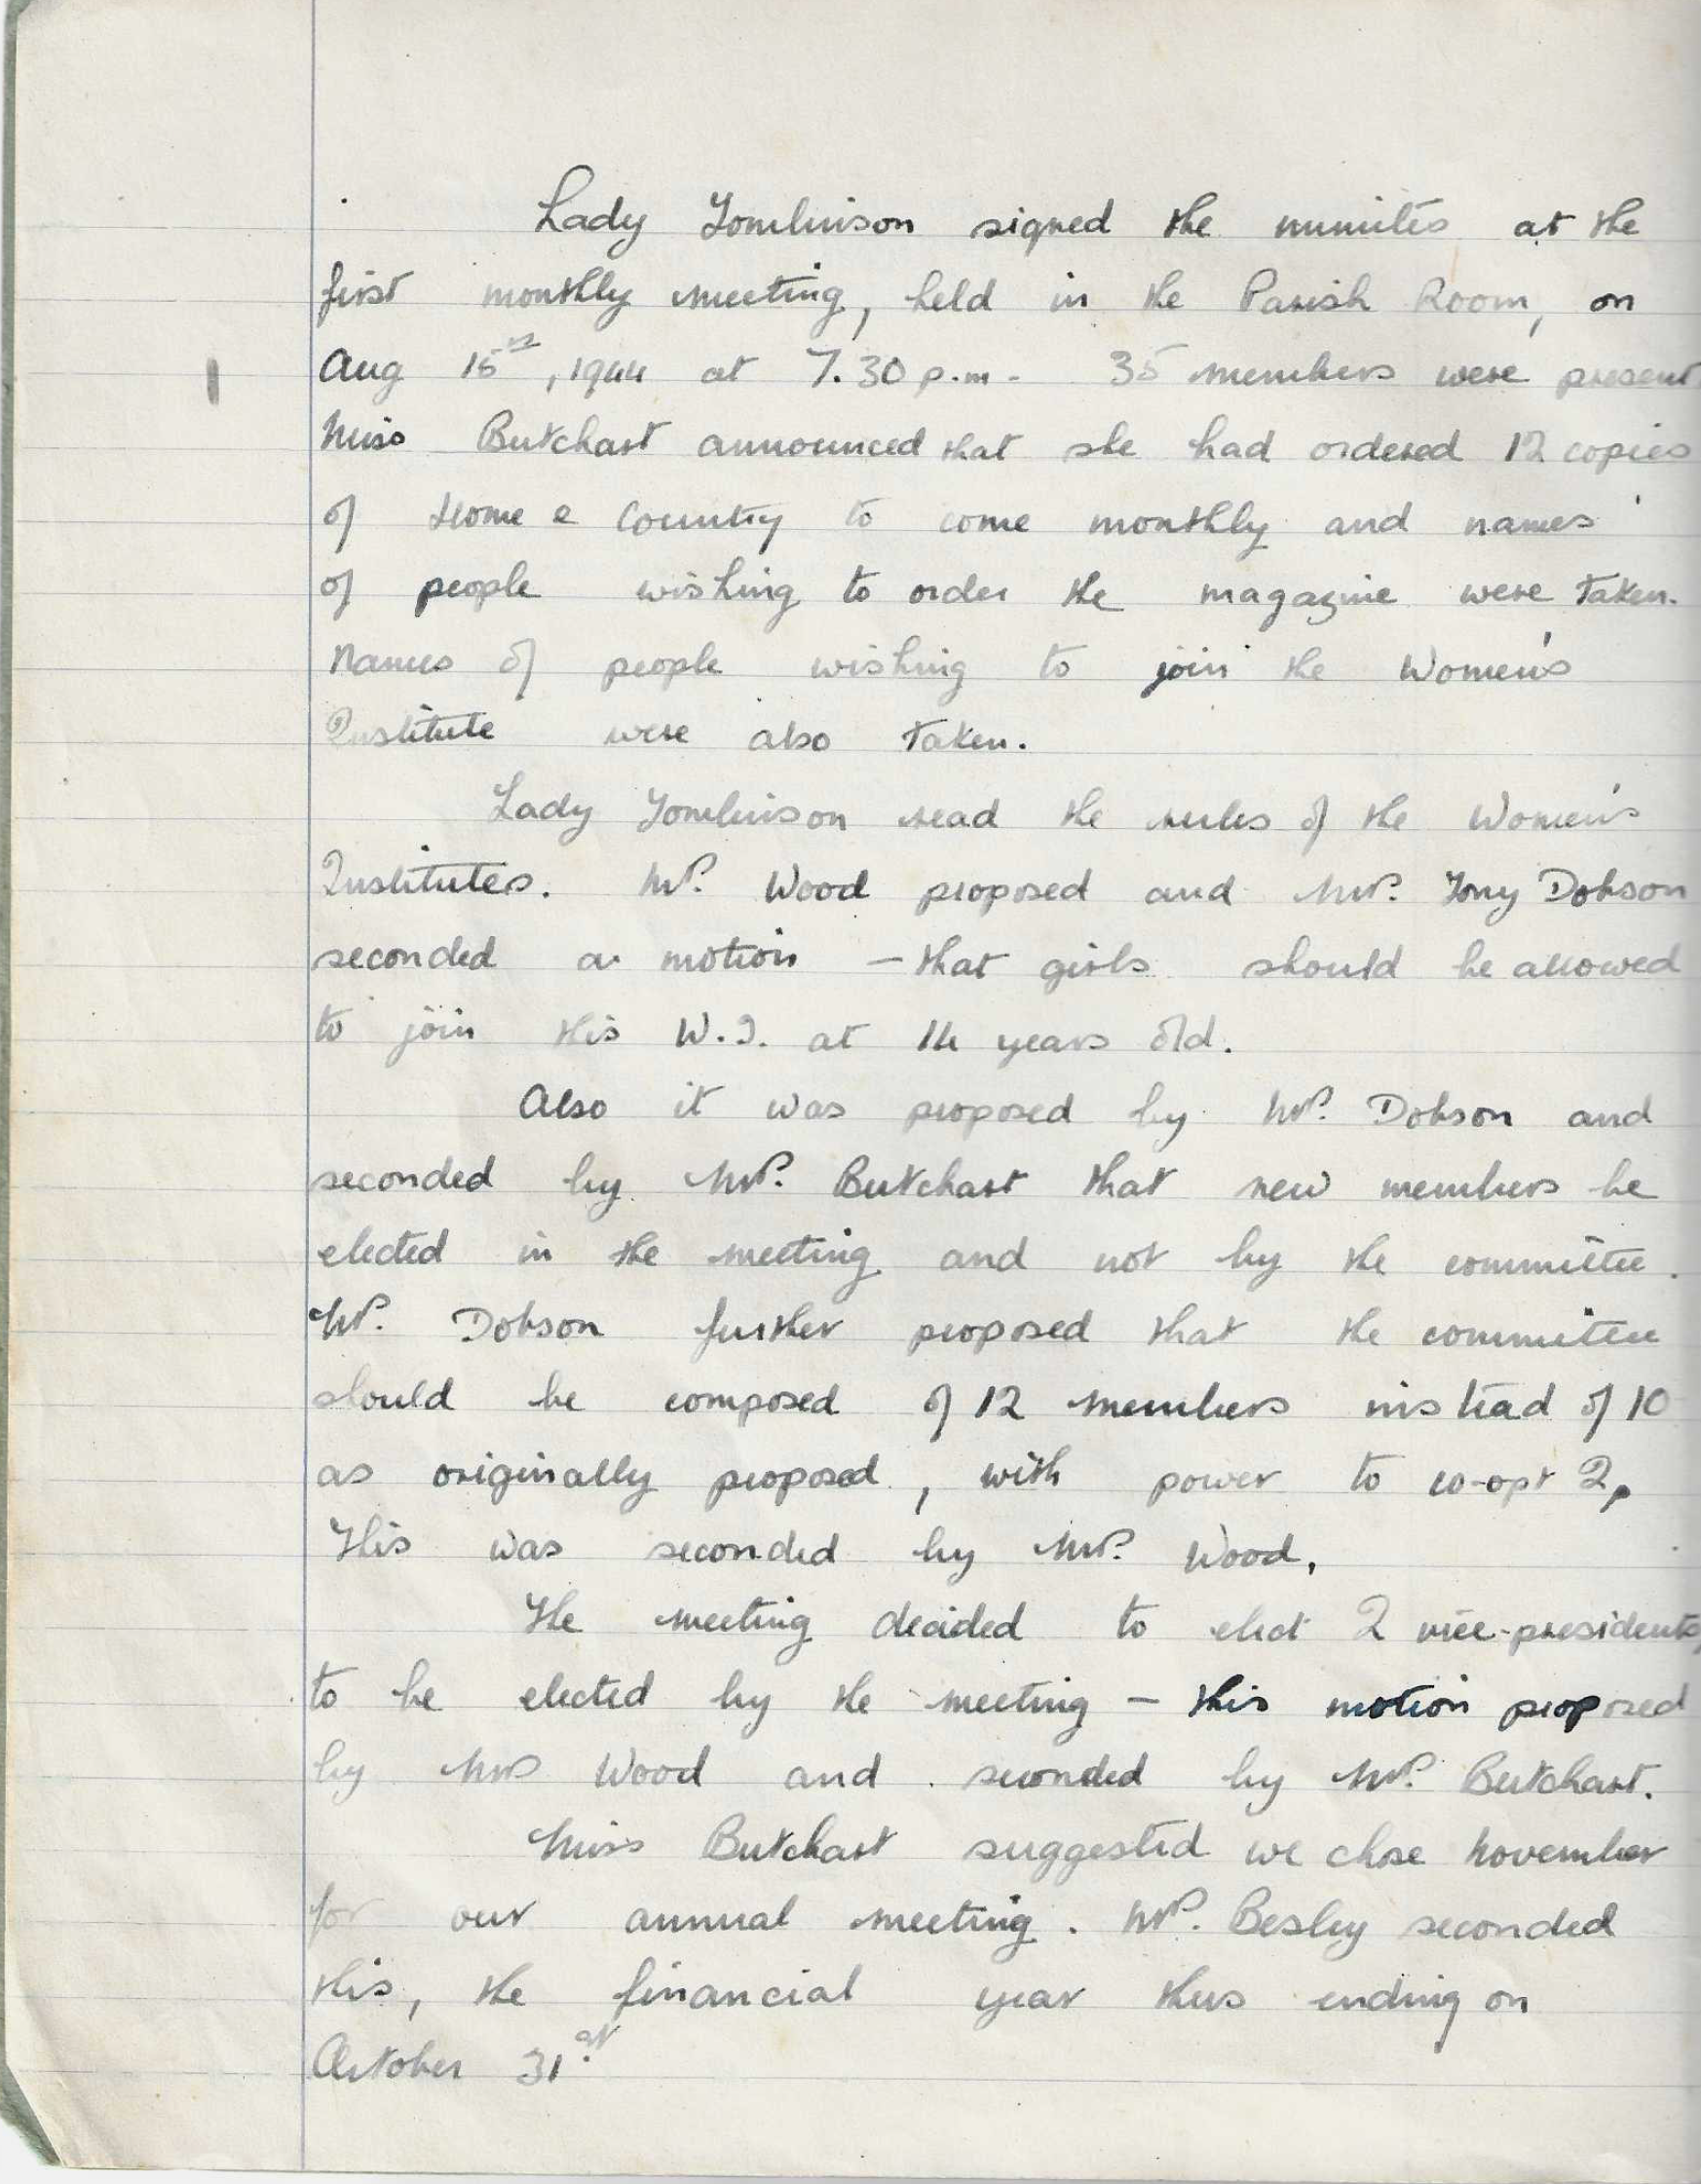 Lady Tomlinson signed the minutes at the
first monthly meeting, held in the Parish Room, on
Aug 15th, 1944 at 7.30 p.m. 35 members were present
Miss Butchart announced that she had ordered 12 copies
of Home & Country to come monthly and names
of people wishing to order the magazine were taken.
Names of people wishing to join the Women's
Institute were also taken.
Lady Tomlinson read the rules of the Women's
Institutes. Mrs. Wood proposed and Mrs. Tony Dobson
seconded a motion — that girls should be allowed
to join this W.I. at 14 years old.
Also it was proposed by Mrs. Dobson and
seconded by Mrs. Butchart that new members be
elected in the meeting and not by the committee.
Mrs. Dobson further proposed that the committee
should be composed of 12 members instead of 10
as originally proposed, with power to co-opt 2.
This was seconded by Mrs. Wood.
The meeting decided to elect 2 vice-presidents
to be elected by the meeting — this motion proposed
by Mrs Wood and seconded by Mrs. Butchart.
Miss Butchart suggested we chose November
for our annual meeting. Mrs. Besley seconded
this, the financial year thus ending on
October 31st.